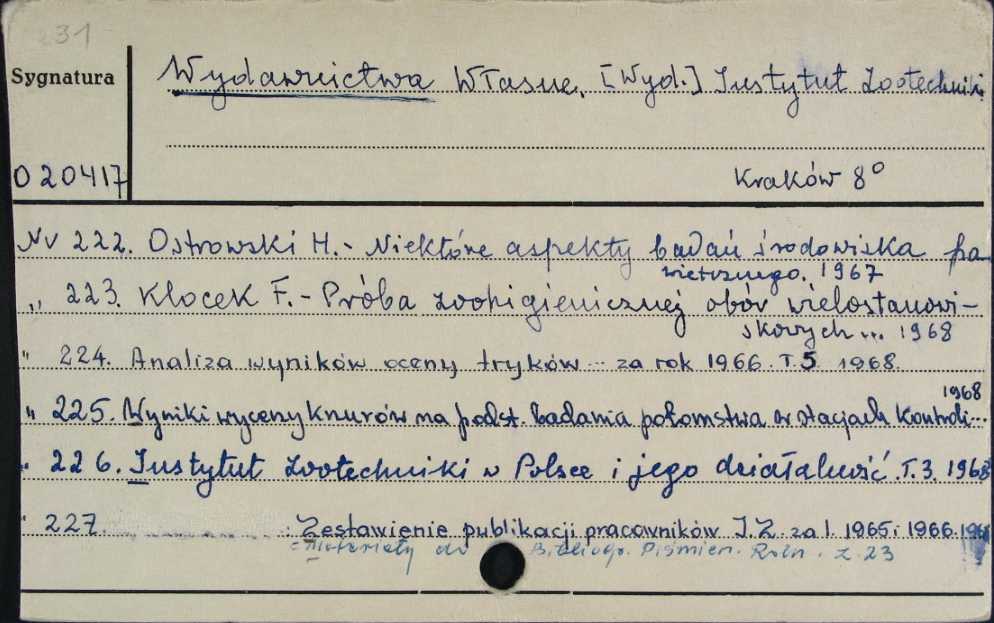 231
Sygnatura
Wydawnictwa Własne. [Wyd.] Instytut Zootechniki
020417
Kraków 8°
Nr 222. Ostrowski H. - Niektóre aspekty badań środowiska pa
wietrznego. 1967
„ 223. Klocek F. - Próba zoohigienicznej obór wielostanowi-
skowych ... 1968
" 224. Analiza wyników oceny tryków ... za rok 1966. T. 5 1968.
1968
" 225. Wyniki wyceny knurów na podst. badania potomstwa w stacjach kontroli...
" 226. Instytut Zootechniki w Polsce i jego działalność. T. 3. 1968
" 227. Zestawienie publikacji pracowników I.Z. za l. 1965 i 1966.
= Materiały do Bibliogr. Piśmien. Roln. z. 23